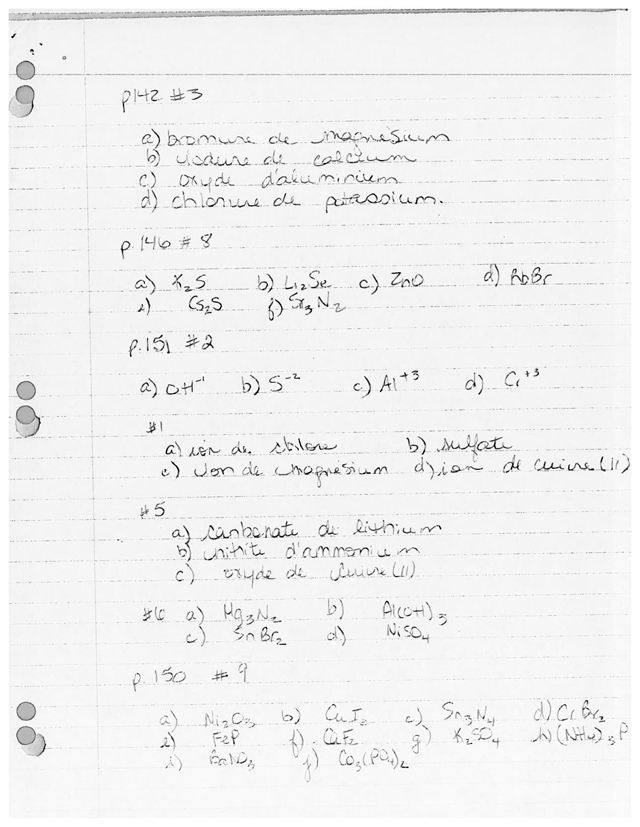 p142 #3
a) bromure de magnésium
b) iodure de calcium
c) oxyde d'aluminium
d) chlorure de potassium.
p. 146 # 8
a) K₂S b) Li₂Se c) ZnO d) RbBr
e) Cs₂S f) Sr₃N₂
p. 151 #2
a) OH⁻¹ b) S⁻² c) Al⁺³ d) Cr⁺³
#1
a) ion de chlore b) sulfate
c) ion de magnésium d) ion de cuivre (II)
#5
a) carbonate de lithium
b) nitrite d'ammonium
c) oxyde de cuivre (II)
#6 a) Mg₃N₂ b) Al(OH)₃
c) SnBr₂ d) NiSO₄
p. 150 # 9
a) Ni₂O₃ b) CuI₂ c) Sn₃N₄ d) CrBr₂
e) FeP f) CaF₂ g) K₂SO₄ h) (NH₄)₃P
i) BaNO₃ j) Co₃(PO₄)₂